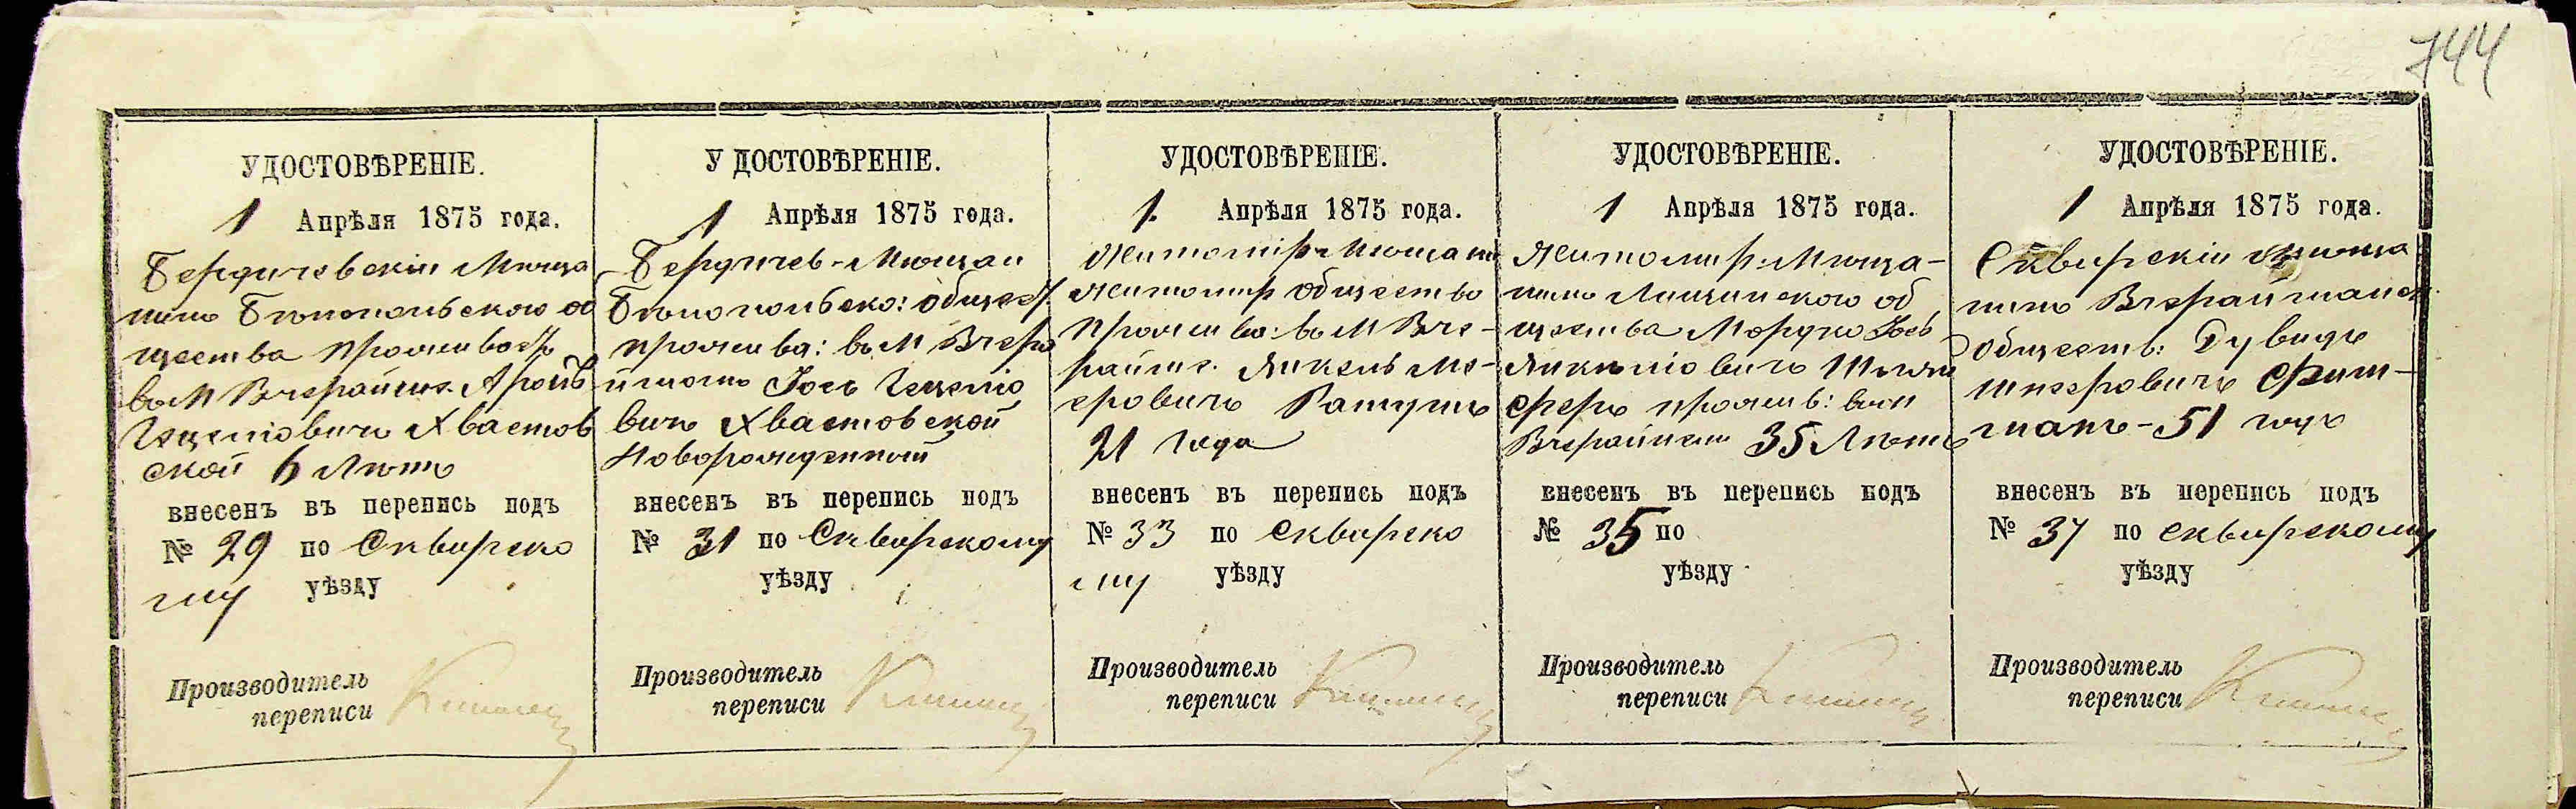 744
УДОСТОВѢРЕНІЕ.
1 Апрѣля 1875 года.
Бердичевскій Мѣща
нинъ Бѣлопольского об
щества прожива:
въ М Вчерайше. Аронъ
Гецеліовичъ Хвастов
ской 6 Лѣтъ
внесенъ въ перепись подъ
№ 29 по Сквирско
му уѣзду
Производитель
переписи
УДОСТОВѢРЕНІЕ.
1 Апрѣля 1875 года.
Бердичев-Мѣщан
Бѣлопольско: общест.
прожива: въ М Вчера
йшомъ Іось Гецеліо
вичъ Хвастовской
Новорожденный
внесенъ въ перепись подъ
№ 31 по Сквирскому
уѣзду
Производитель
переписи
УДОСТОВѢРЕНІЕ.
1. Апрѣля 1875 года.
Житомір-Мѣщани
Житомир общество
прожива: въ М Вче-
райше. Янкель Ме-
еровичъ
21 года
внесенъ въ перепись подъ
№ 33 по Сквирско
му уѣзду
Производитель
переписи
УДОСТОВѢРЕНІЕ.
1 Апрѣля 1875 года.
Житомир: Мѣща-
нинъ Лищинского об
щества Мордко Іось
Янкеліовичъ
феръ прожив: въ М
Вчерайшем 35 Лѣтъ
внесенъ въ перепись подъ
№ 35 по
уѣзду
Производитель
переписи
УДОСТОВѢРЕНІЕ.
1 Апрѣля 1875 года.
Сквирскій Мѣща
нинъ Вчерайшанск.
обществ: Дувидъ
Шмееровичъ Фиш-
манъ - 51 годъ
внесенъ въ перепись подъ
№ 37 по Сквирскому
уѣзду
Производитель
переписи